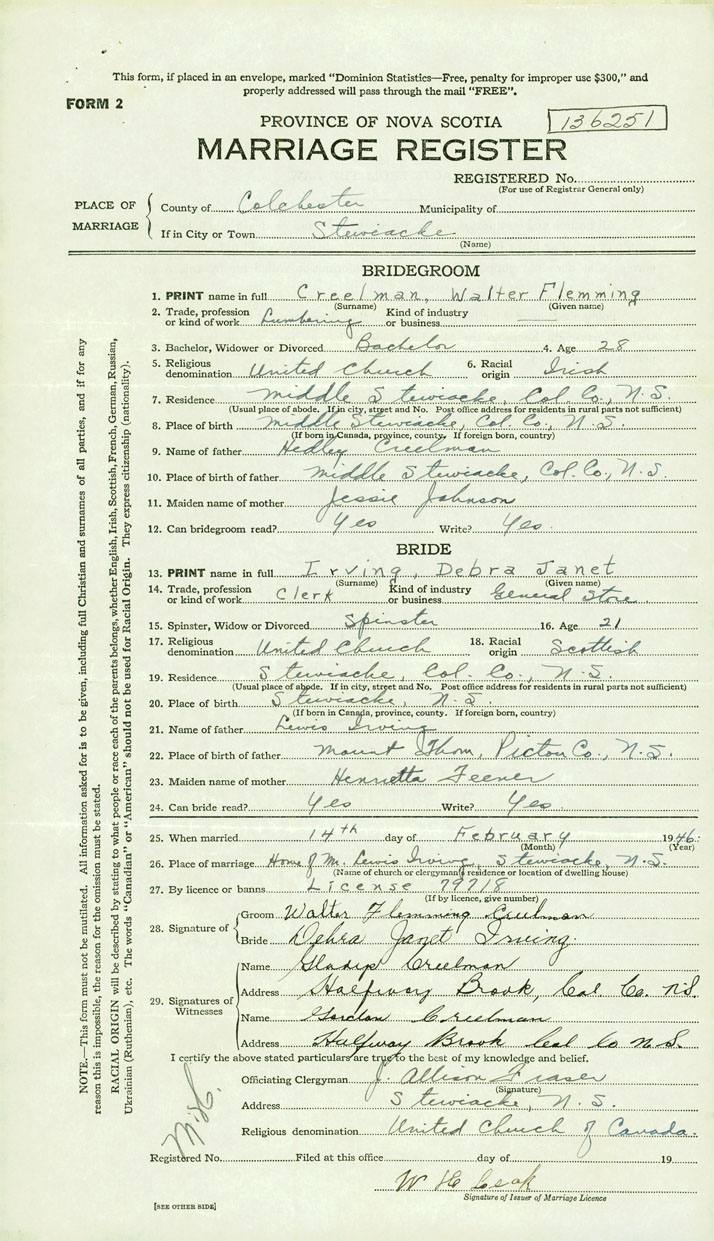 This form, if placed in an envelope, marked "Dominion Statistics—Free, penalty for improper use $300," and
properly addressed will pass through the mail "FREE".
FORM 2
PROVINCE OF NOVA SCOTIA
136251
MARRIAGE REGISTER
REGISTERED No.
(For use of Registrar General only)
PLACE OF MARRIAGE
County of Colchester Municipality of
If in City or Town Stewiacke
(Name)
BRIDEGROOM
1. PRINT name in full Creelman, Walter Flemming
(Surname) (Given name)
2. Trade, profession or kind of work Lumbering Kind of industry or business —
3. Bachelor, Widower or Divorced Bachelor 4. Age 28
5. Religious denomination United Church 6. Racial origin Irish
7. Residence Middle Stewiacke, Col. Co., N.S.
(Usual place of abode. If in city, street and No. Post office address for residents in rural parts not sufficient)
8. Place of birth Middle Stewiacke, Col. Co., N.S.
(If born in Canada, province, county. If foreign born, country)
9. Name of father Hedley Creelman
10. Place of birth of father Middle Stewiacke, Col. Co., N.S.
11. Maiden name of mother Jessie Johnson
12. Can bridegroom read? Yes Write? Yes
BRIDE
13. PRINT name in full Irving, Debra Janet
(Surname) (Given name)
14. Trade, profession or kind of work Clerk Kind of industry or business General Store
15. Spinster, Widow or Divorced Spinster 16. Age 21
17. Religious denomination United Church 18. Racial origin Scottish
19. Residence Stewiacke, Col. Co., N.S.
(Usual place of abode. If in city, street and No. Post office address for residents in rural parts not sufficient)
20. Place of birth Stewiacke, N.S.
(If born in Canada, province, county. If foreign born, country)
21. Name of father Lewis Irving
22. Place of birth of father Mount Thom, Pictou Co., N.S.
23. Maiden name of mother Henrietta Feener
24. Can bride read? Yes Write? Yes
25. When married 14th day of February 1946
(Month) (Year)
26. Place of marriage Home of Mr. Lewis Irving, Stewiacke, N.S.
(Name of church or clergyman's residence or location of dwelling house)
27. By licence or banns License 79718
(If by licence, give number)
28. Signature of
Groom Walter Flemming Creelman
Bride Debra Janet Irving
29. Signatures of Witnesses
Name Gladys Creelman
Address Halfway Brook, Col Co. N.S.
Name Gordon Creelman
Address Halfway Brook Col Co N.S.
I certify the above stated particulars are true to the best of my knowledge and belief.
Officiating Clergyman J. Allison Fraser
(Signature)
Address Stewiacke, N.S.
Religious denomination United Church of Canada
Registered No. Filed at this office day of 19
Signature of Issuer of Marriage Licence
[SEE OTHER SIDE]
NOTE.—This form must not be mutilated. All information asked for is to be given, including full Christian and surnames of all parties, and if for any
reason this is impossible, the reason for the omission must be stated.
RACIAL ORIGIN will be described by stating to what people or race each of the parents belongs, whether English, Irish, Scottish, French, German, Russian,
Ukrainian (Ruthenian), etc. The words "Canadian" or "American" should not be used for Racial Origin. They express citizenship (nationality).